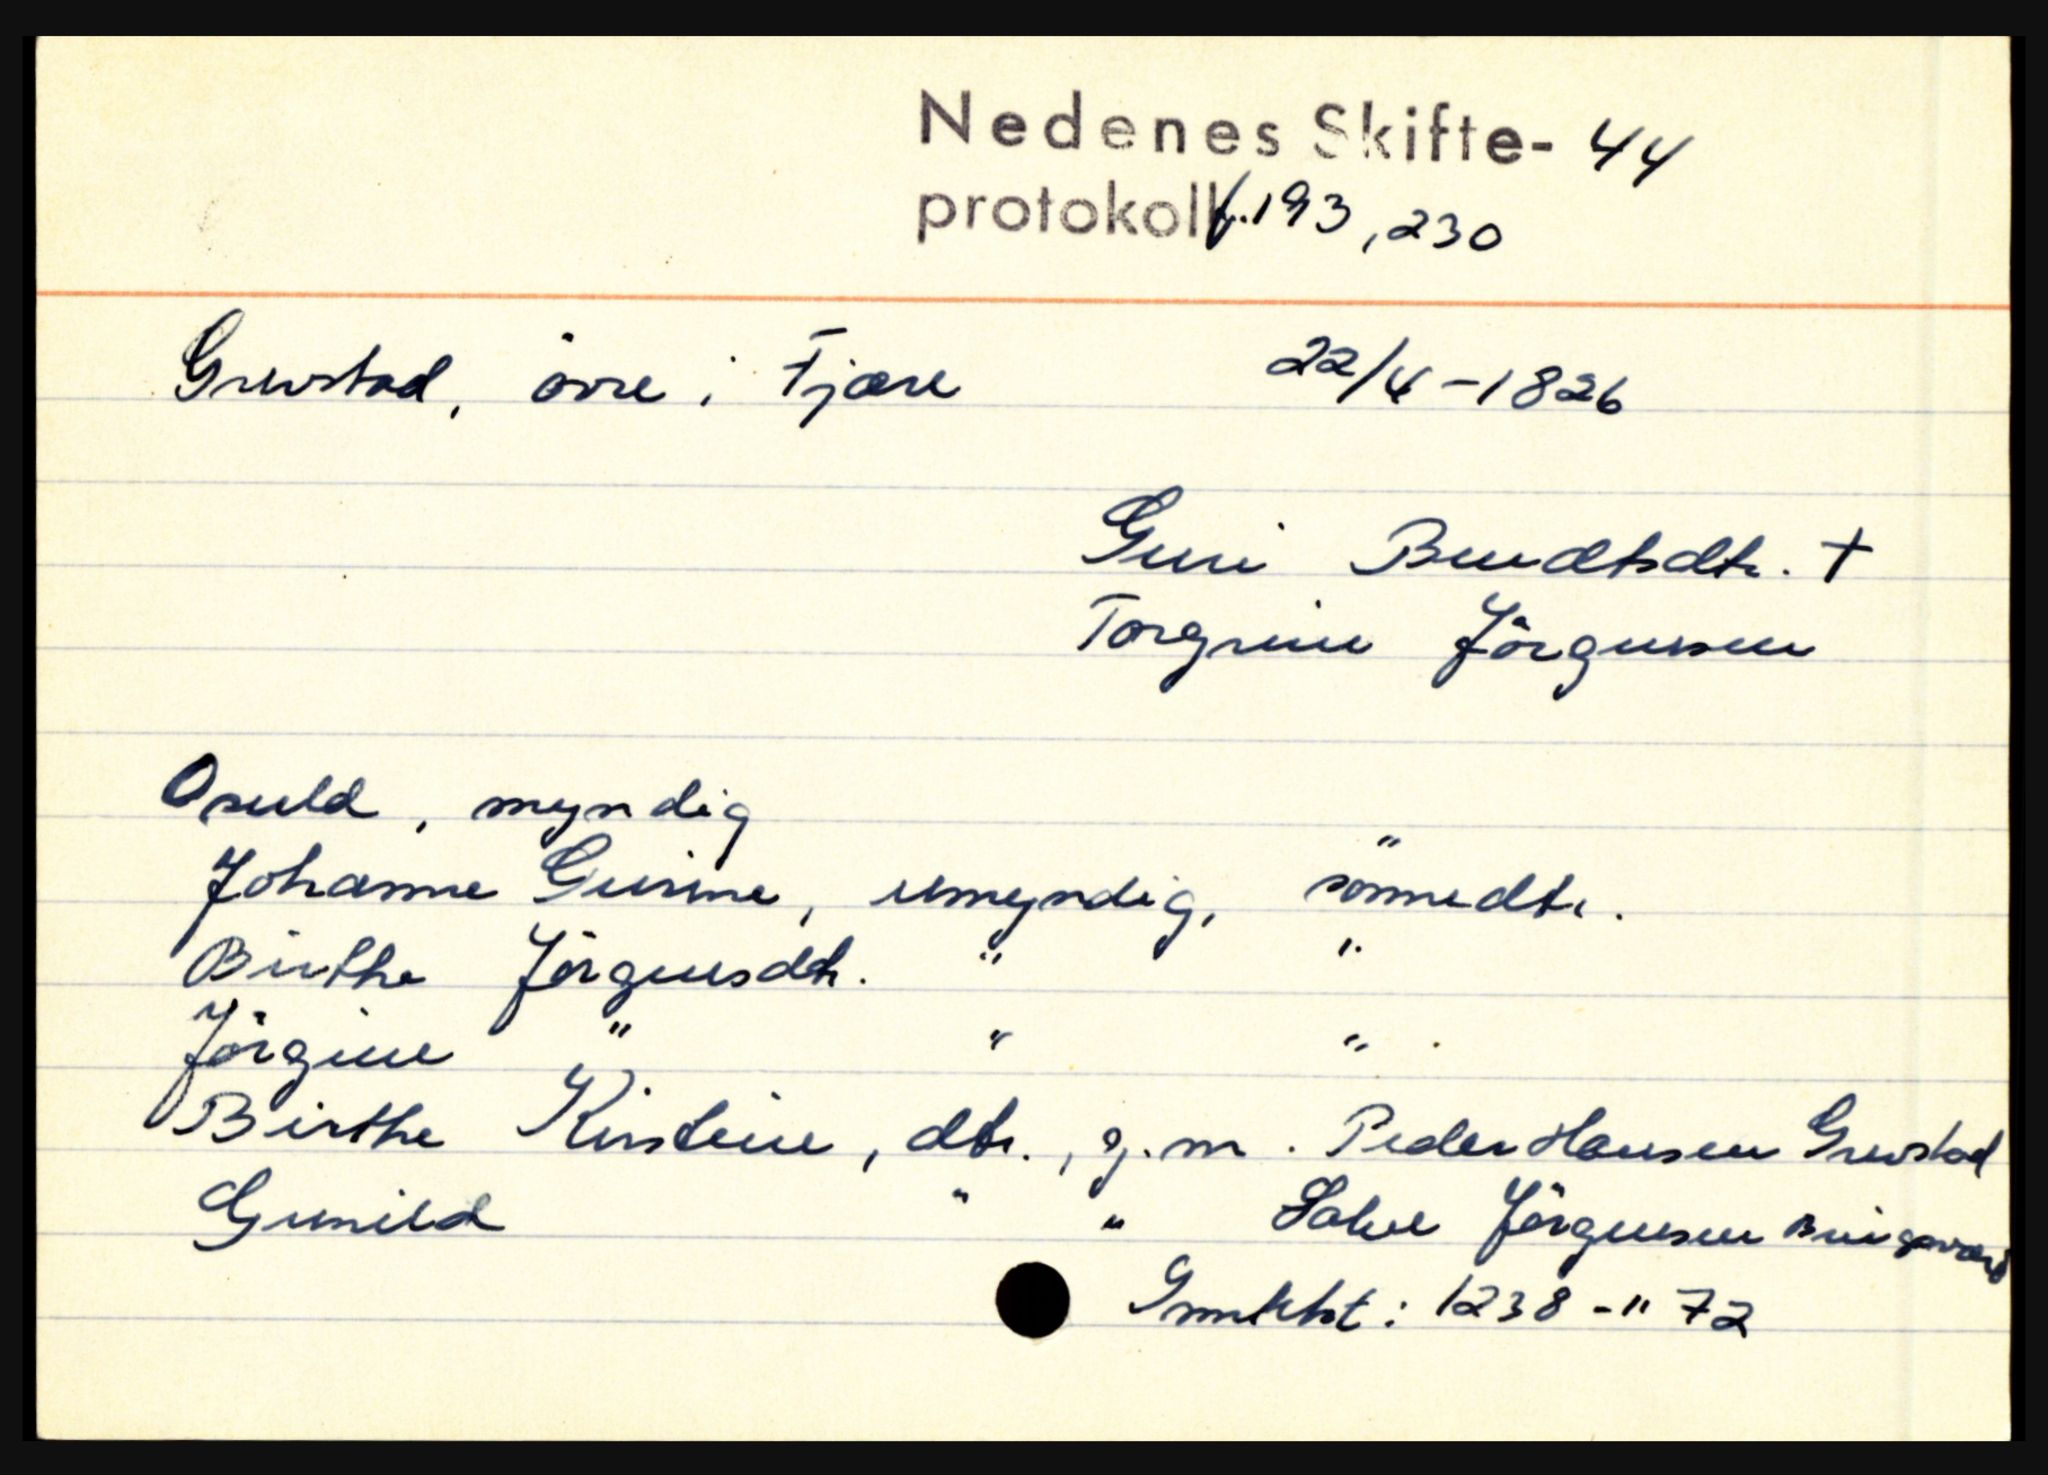 Nedenes Skifte- 44
protokoll f. 193, 230
Grevstad, övre i Fjære 22/4-1826
Guri Berndtsdtr. †
Torgrim Jörgensen
Osuld, myndig
Johanne Gurine, umyndig, sönnedtr.
Birthe Jörgensdtr. " "
Jörgine " " "
Birthe Kirstine, dtr., g.m. Peder Hansen Grevstad
Gunild " " Salve Jörgensen
: 1238 - " 72